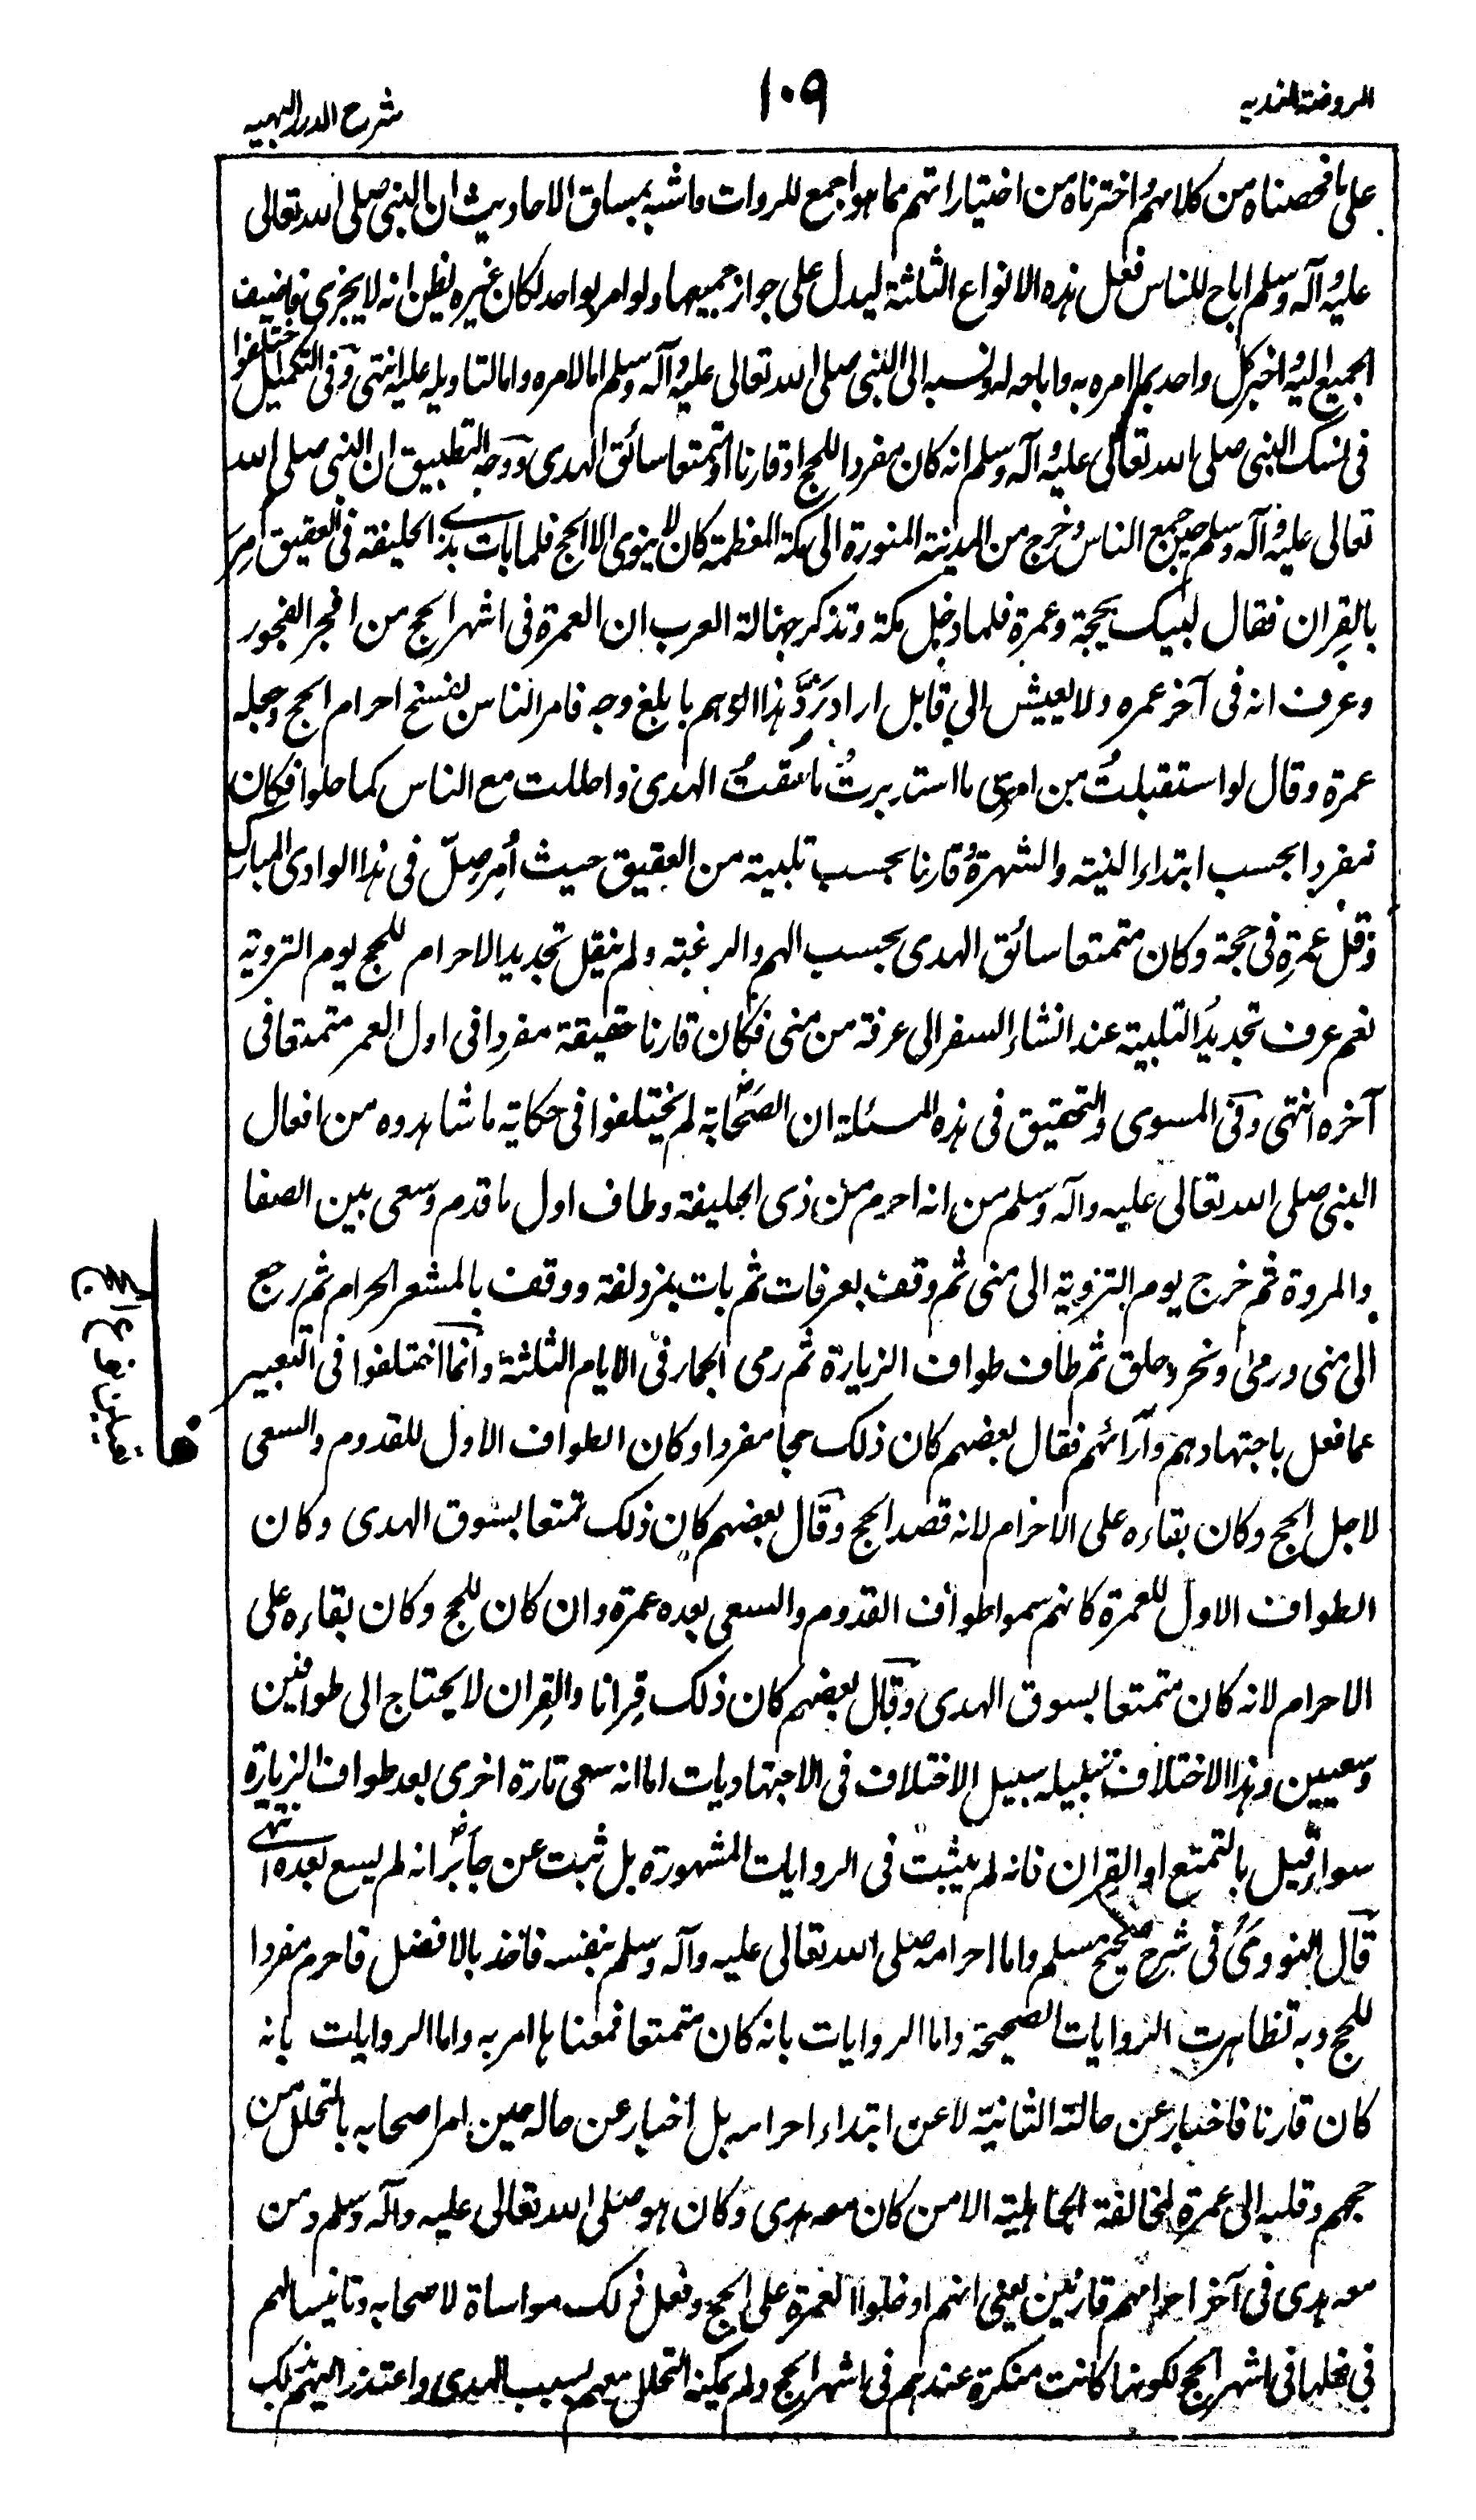 الروضة الندیه
۱۰۹
شرح الدرر البهیه
علی ما فحصناه من کلامهم و اخترناه من اختیاراتهم مما هو اجمع للروات و اشبه بمساق الاحادیث ان النبی صلی الله تعالی
علیه و آله وسلم اباح للناس فعل هذه الانواع الثلثة لیدل علی جواز جمیعها ولو امر بواحد لکان غیره یظن انه لا یجزی فاضیف
الجمیع الیه و اخبر کل واحد بما امره به و اباحه له و نسبه الی النبی صلی الله تعالی علیه و آله وسلم اما لامره و اما لتاویله علیه انتهی و فی التکمیل اختلفوا
فی نسک النبی صلی الله تعالی علیه و آله وسلم انه کان مفردا للحج او قارنا او متمتعا سائق الهدی و وجه التطبیق ان النبی صلی الله
تعالی علیه و آله وسلم حین جمع الناس و خرج من المدینة المنورة الی مکة المعظمة کان لا ینوی الا الحج فلما بات بذی الحلیفة فی العقیق امر
بالقِران فقال لبیک بحجة وعمرة فلما دخل مکة وتذکر جهالة العرب ان العمرة فی اشهر الحج من افجر الفجور
وعرف انه فی آخر عمره ولا یعیش الی قابل اراد رَدَّ هذا الوهم بابلغ وجه فامر الناس بفسخ احرام الحج وجعله
عمرة وقال لو استقبلتُ من امری ما استدبرتُ ما سُقتُ الهدی و احللت مع الناس کما حلوا فکان
مفردا بحسب ابتداء النیة والشهرة و قارنا بحسب تلبیة من العقیق حیث اُمِر صلّ فی هذا الوادی المبارک
وقل عمرة فی حجة وکان متمتعا سائق الهدی بحسب الهم والرغبة ولم ینقل تجدید الاحرام للحج یوم الترویة
نعم عرف تجدیدُ التلبیة عند انشاء السفر الی عرفة من منی فکان قارنا حقیقة مفردا فی اول العمر متمتعا فی
آخره انتهی وفی المسوی والتحقیق فی هذه المسئلة ان الصحابة لم یختلفوا فی حکایة ما شاهدوه من افعال
النبی صلی الله تعالی علیه وآله وسلم من انه احرم من ذی الحلیفة وطاف اول ما قدم وسعی بین الصفا
والمروة ثم خرج یوم الترویة الی منی ثم وقف بعرفات ثم بات بمزدلفة ووقف بالمشعر الحرام ثم رجع
الی منی ورمی ونحر وحلق ثم طاف طواف الزیارة ثم رمی الجمار فی الایام الثلثة وانما اختلفوا فی التعبیر
عما فعل باجتهادهم وآرائهم فقال بعضهم کان ذلک حجا مفردا وکان الطواف الاول للقدوم والسعی
لاجل الحج وکان بقاءه علی الاحرام لانه قصد الحج وقال بعضهم کان ذلک تمتعا بسوق الهدی وکان
الطواف الاول للعمرة کانهم سموا طواف القدوم والسعی بعده عمرة وان کان للحج وکان بقاءه علی
الاحرام لانه کان متمتعا بسوق الهدی وقال بعضهم کان ذلک قِرانا والقِران لا یحتاج الی طوافین
وسعیین وهذا الاختلاف سبیله سبیل الاختلاف فی الاجتهادیات اما انه سعی تارة اخری بعد طواف الزیارة
سواء قیل بالتمتع او القِران فانه لم یثبت فی الروایات المشهورة بل ثبت عن جابر انه لم یسع بعده انتهی
قال النووی فی شرح صحیح مسلم واما احرامه صلی الله تعالی علیه وآله وسلم بنفسه فاخذ بالافضل فاحرم مفردا
للحج وبه تظاهرت الروایات الصحیحة واما الروایات بانه کان متمتعا فمعناها امر به واما الروایات بانه
کان قارنا فاخبار عن حالته الثانیة لا عن ابتداء احرامه بل اخبار عن حاله حین امر اصحابه بالتحلل من
حجهم وقلبه الی عمرة لمخالفة الجاهلیة الا من کان معه هدی وکان هو صلی الله تعالی علیه وآله وسلم ومن
معه هدی فی آخر احرامهم قارنین یعنی انهم ادخلوا العمرة علی الحج وفعل ذلک مواساة لاصحابه وتانیسا لهم
فی فعلها فی اشهر الحج لکونها کانت منکرة عندهم فی اشهر الحج ولم یمکنه التحلل معهم بسبب الهدی واعتذر الیهم بذلک